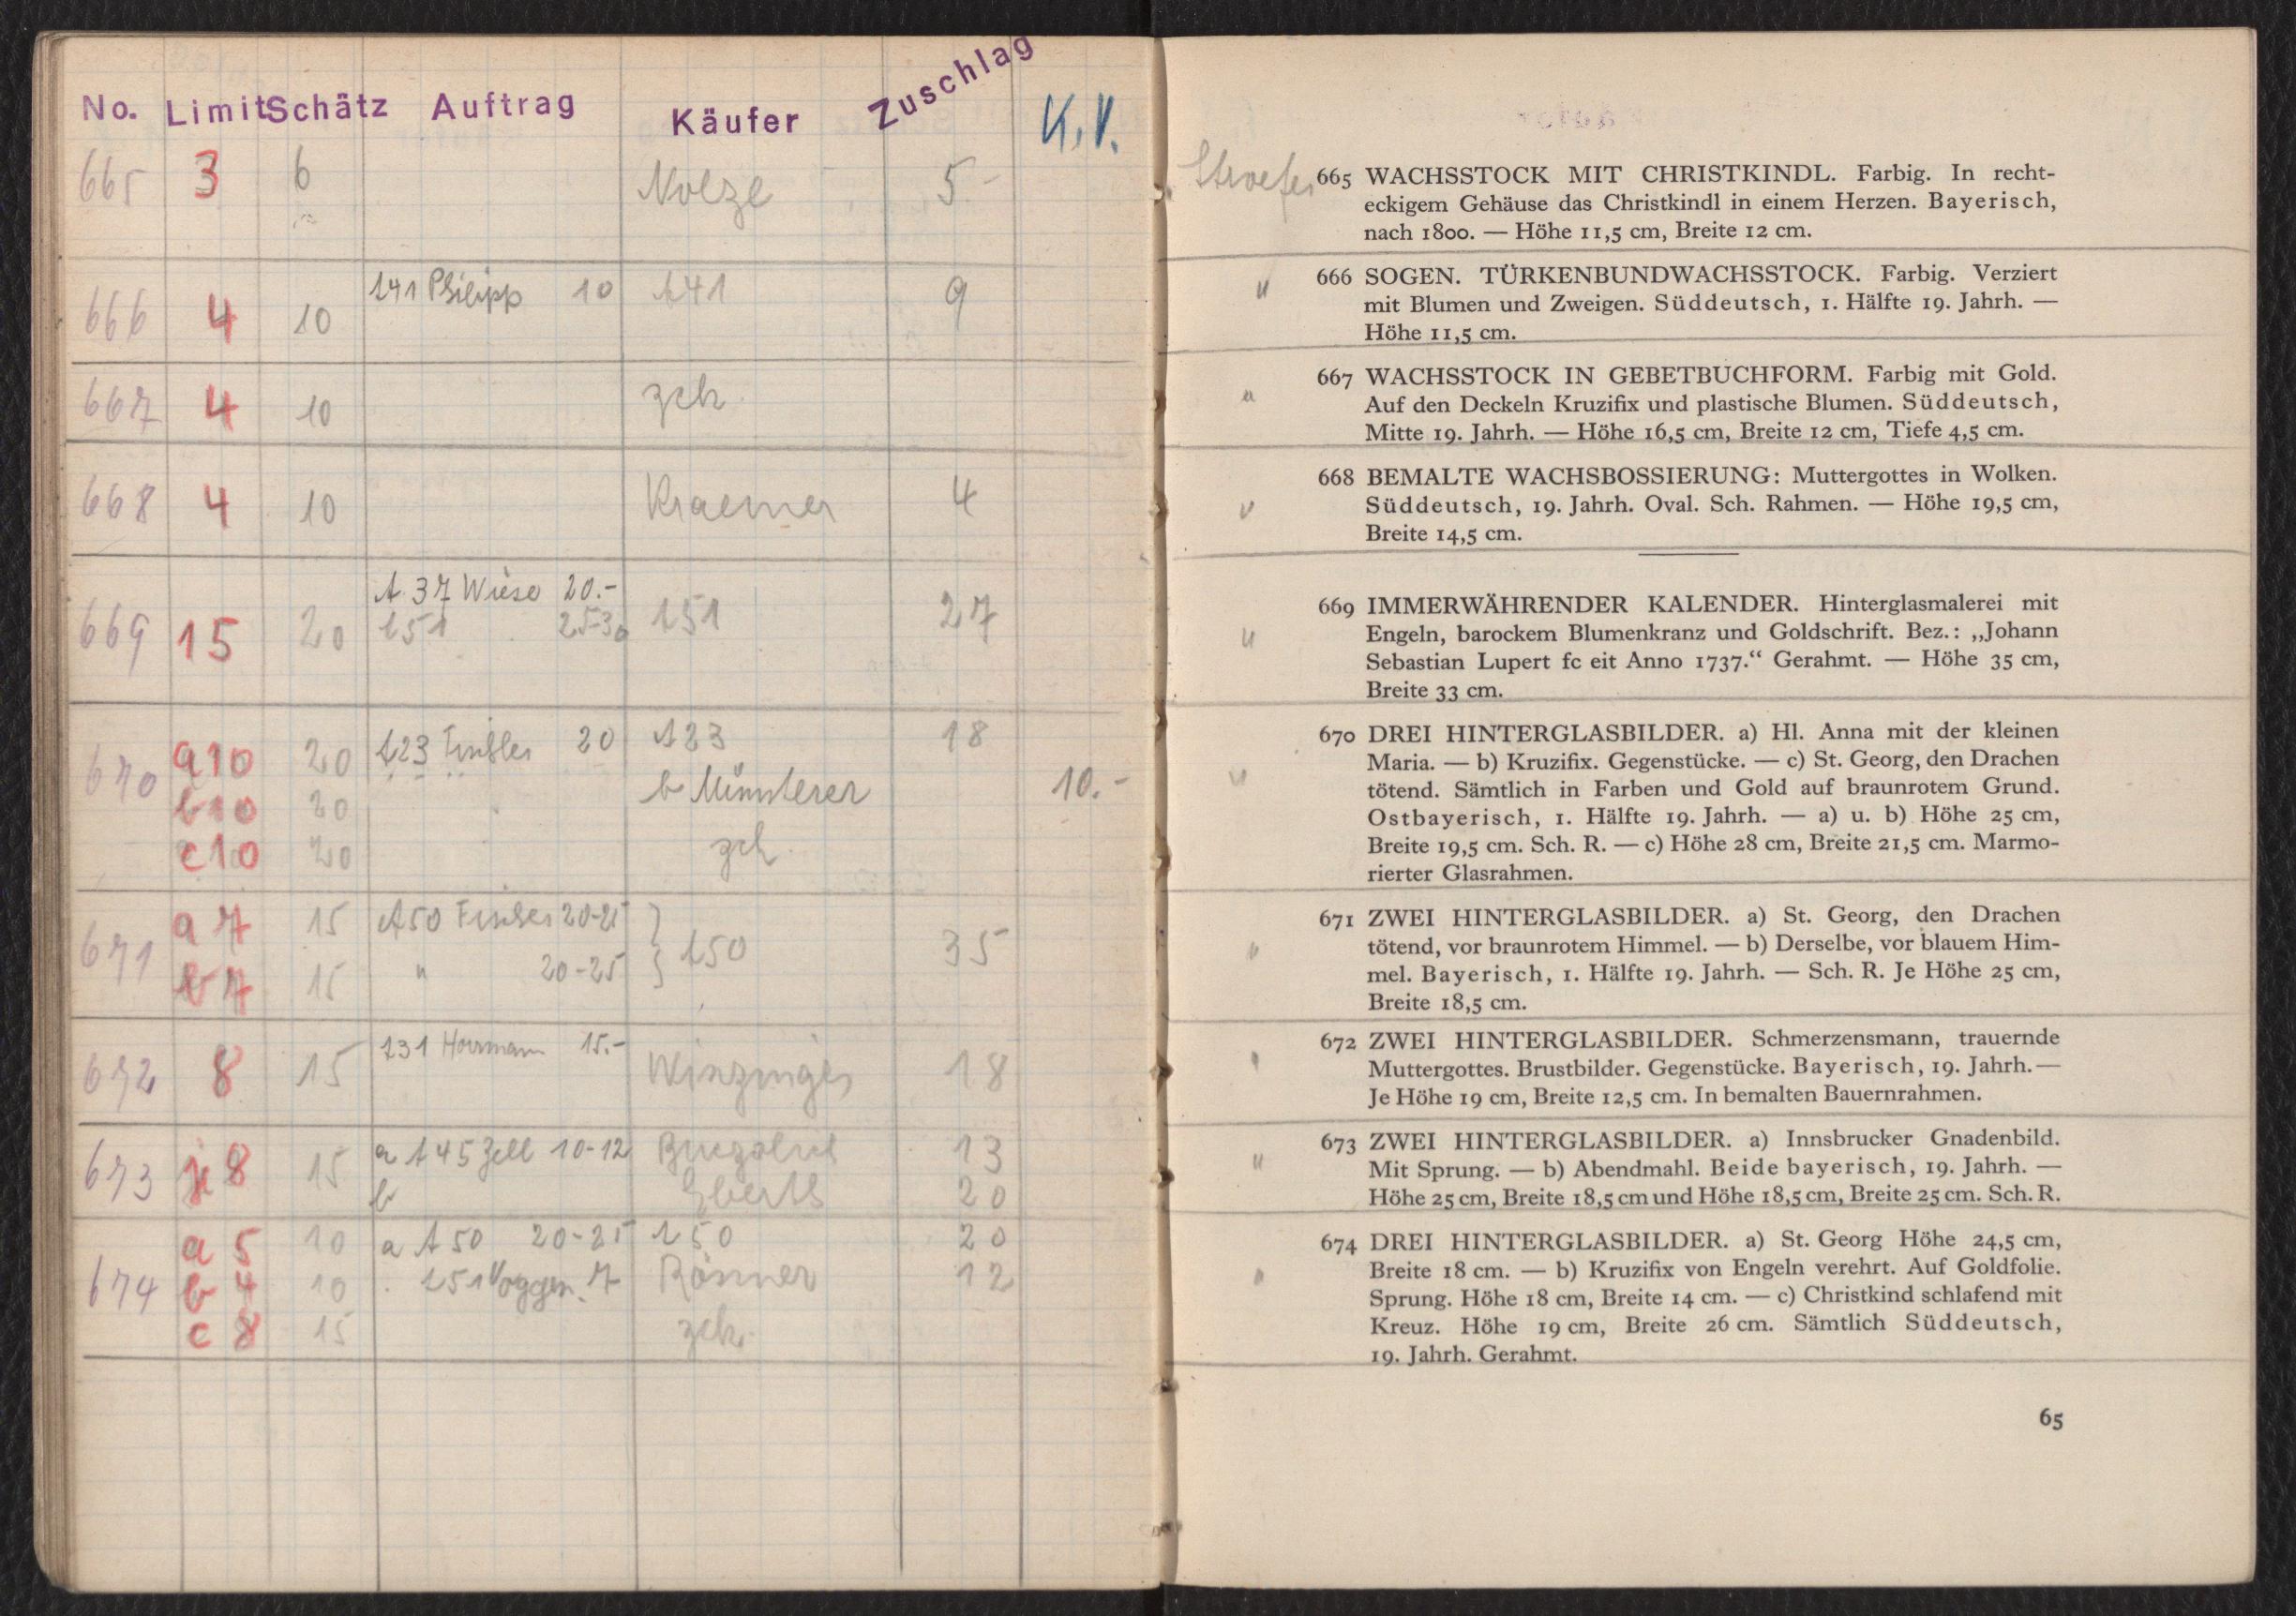 No. Limit Schätz Auftrag Käufer Zuschlag K.V.
665 3 6 Nolze 5-
666 4 10 141 Philipp 10 A41 9
667 4 10 zch
668 4 10 Kraemer 4
A 37 Wiese 20.-
669 15 20 151 25-30 151 27
670 a10 20 123 20 A23 18
b10 20 b Münsterer 10.-
c10 20 zch.
671 a7 15 A50 Fischer 20-25 } 150 35
b7 15 " 20-25
672 8 15 131 Horrmann 15.- Winzinger 18
673 je 8 15 a A45 Zell 10-12 13
b Eberth 20
674 a 5 10 a A50 20-25 150 20
b 4 10 151 Voggen. 7 Rösner 12
c 8 15 zch.
Stroefer
665 WACHSSTOCK MIT CHRISTKINDL. Farbig. In recht-
eckigem Gehäuse das Christkindl in einem Herzen. Bayerisch,
nach 1800. — Höhe 11,5 cm, Breite 12 cm.
" 666 SOGEN. TÜRKENBUNDWACHSSTOCK. Farbig. Verziert
mit Blumen und Zweigen. Süddeutsch, 1. Hälfte 19. Jahrh. —
Höhe 11,5 cm.
" 667 WACHSSTOCK IN GEBETBUCHFORM. Farbig mit Gold.
Auf den Deckeln Kruzifix und plastische Blumen. Süddeutsch,
Mitte 19. Jahrh. — Höhe 16,5 cm, Breite 12 cm, Tiefe 4,5 cm.
" 668 BEMALTE WACHSBOSSIERUNG: Muttergottes in Wolken.
Süddeutsch, 19. Jahrh. Oval. Sch. Rahmen. — Höhe 19,5 cm,
Breite 14,5 cm.
" 669 IMMERWÄHRENDER KALENDER. Hinterglasmalerei mit
Engeln, barockem Blumenkranz und Goldschrift. Bez.: „Johann
Sebastian Lupert fc eit Anno 1737.“ Gerahmt. — Höhe 35 cm,
Breite 33 cm.
" 670 DREI HINTERGLASBILDER. a) Hl. Anna mit der kleinen
Maria. — b) Kruzifix. Gegenstücke. — c) St. Georg, den Drachen
tötend. Sämtlich in Farben und Gold auf braunrotem Grund.
Ostbayerisch, 1. Hälfte 19. Jahrh. — a) u. b) Höhe 25 cm,
Breite 19,5 cm. Sch. R. — c) Höhe 28 cm, Breite 21,5 cm. Marmo-
rierter Glasrahmen.
" 671 ZWEI HINTERGLASBILDER. a) St. Georg, den Drachen
tötend, vor braunrotem Himmel. — b) Derselbe, vor blauem Him-
mel. Bayerisch, 1. Hälfte 19. Jahrh. — Sch. R. Je Höhe 25 cm,
Breite 18,5 cm.
" 672 ZWEI HINTERGLASBILDER. Schmerzensmann, trauernde
Muttergottes. Brustbilder. Gegenstücke. Bayerisch, 19. Jahrh. —
Je Höhe 19 cm, Breite 12,5 cm. In bemalten Bauernrahmen.
" 673 ZWEI HINTERGLASBILDER. a) Innsbrucker Gnadenbild.
Mit Sprung. — b) Abendmahl. Beide bayerisch, 19. Jahrh. —
Höhe 25 cm, Breite 18,5 cm und Höhe 18,5 cm, Breite 25 cm. Sch. R.
" 674 DREI HINTERGLASBILDER. a) St. Georg Höhe 24,5 cm,
Breite 18 cm. — b) Kruzifix von Engeln verehrt. Auf Goldfolie.
Sprung. Höhe 18 cm, Breite 14 cm. — c) Christkind schlafend mit
Kreuz. Höhe 19 cm, Breite 26 cm. Sämtlich Süddeutsch,
19. Jahrh. Gerahmt.
65